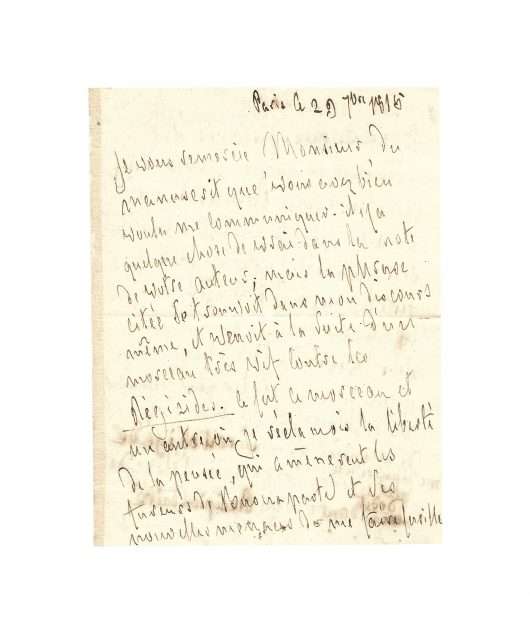 Paris le 29 7bre 1815
Je vous remercie Monsieur du
manuscrit que vous avez bien
voulu me communiquer. il y a
quelque chose de vrai dans la note
de votre auteur; mais la phrase
citée se trouvoit dans mon discours
même, et venoit à la suite d'un
morceau très vif contre les
Régicides. ce fut ce morceau et
un autre où je réclamois la liberté
de la pensée, qui amenèrent les
fureurs de Buonaparte et ses
nouvelles menaces de me faire fusiller